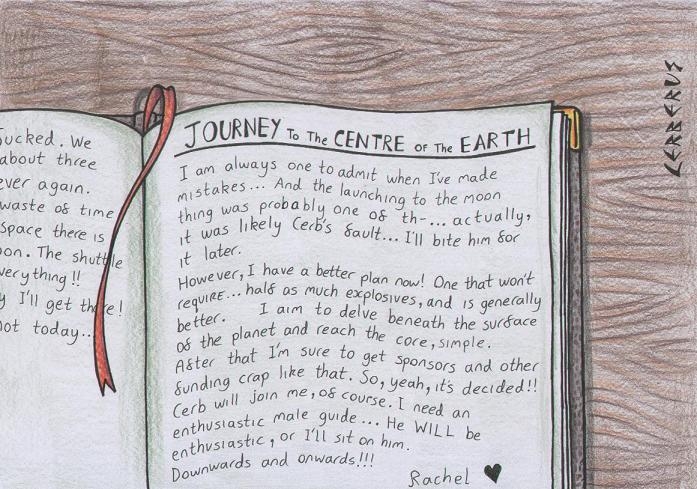 ucked. We
about three
ever again.
waste of time
space there is
oon. The shuttle
verything!!
y I'll get there!
not today...
JOURNEY To The CENTRE of The EARTH
I am always one to admit when I've made
mistakes... And the launching to the moon
thing was probably one of th-... actually,
it was likely Cerb's fault... I'll bite him for
it later.
However, I have a better plan now! One that won't
require... half as much explosives, and is generally
better. I aim to delve beneath the surface
of the planet and reach the core, simple.
After that I'm sure to get sponsors and other
funding crap like that. So, yeah, it's decided!!
Cerb will join me, of course. I need an
enthusiastic male guide... He WILL be
enthusiastic, or I'll sit on him.
Downwards and onwards!!!
Rachel ♥
CERBERUS